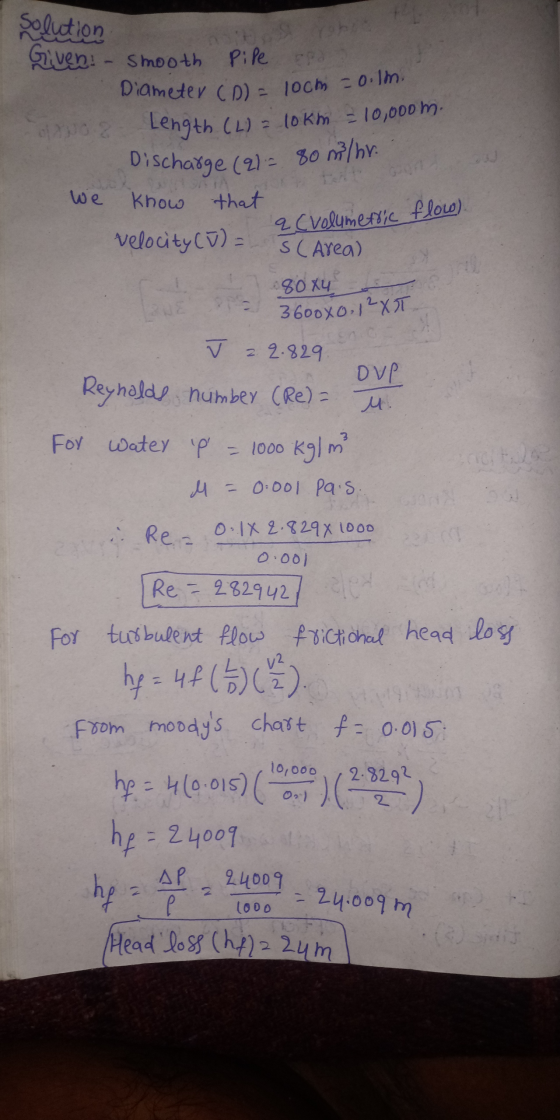 Solution
Given:- smooth Pipe
Diameter (D) = 10cm = 0.1m.
Length (L) = 10km = 10,000m.
Discharge (q) = 80 m³/hr.
We know that
velocity (V̅) = q (volumetric flow) / S (Area)
= 80×4 / 3600×0.1²×π
V̅ = 2.829
Reynolds number (Re) = DVρ / μ.
For water 'ρ' = 1000 kg/m³
μ = 0.001 Pa.s.
∴ Re = 0.1 × 2.829 × 1000 / 0.001
Re = 282942
For turbulent flow frictional head loss
hf = 4f (L/D) (V²/2).
From moody's chart f = 0.015.
hf = 4(0.015) (10,000/0.1) (2.829²/2)
hf = 24009
hf = ΔP/ρ = 24009/1000 = 24.009 m
Head loss (hf) = 24m